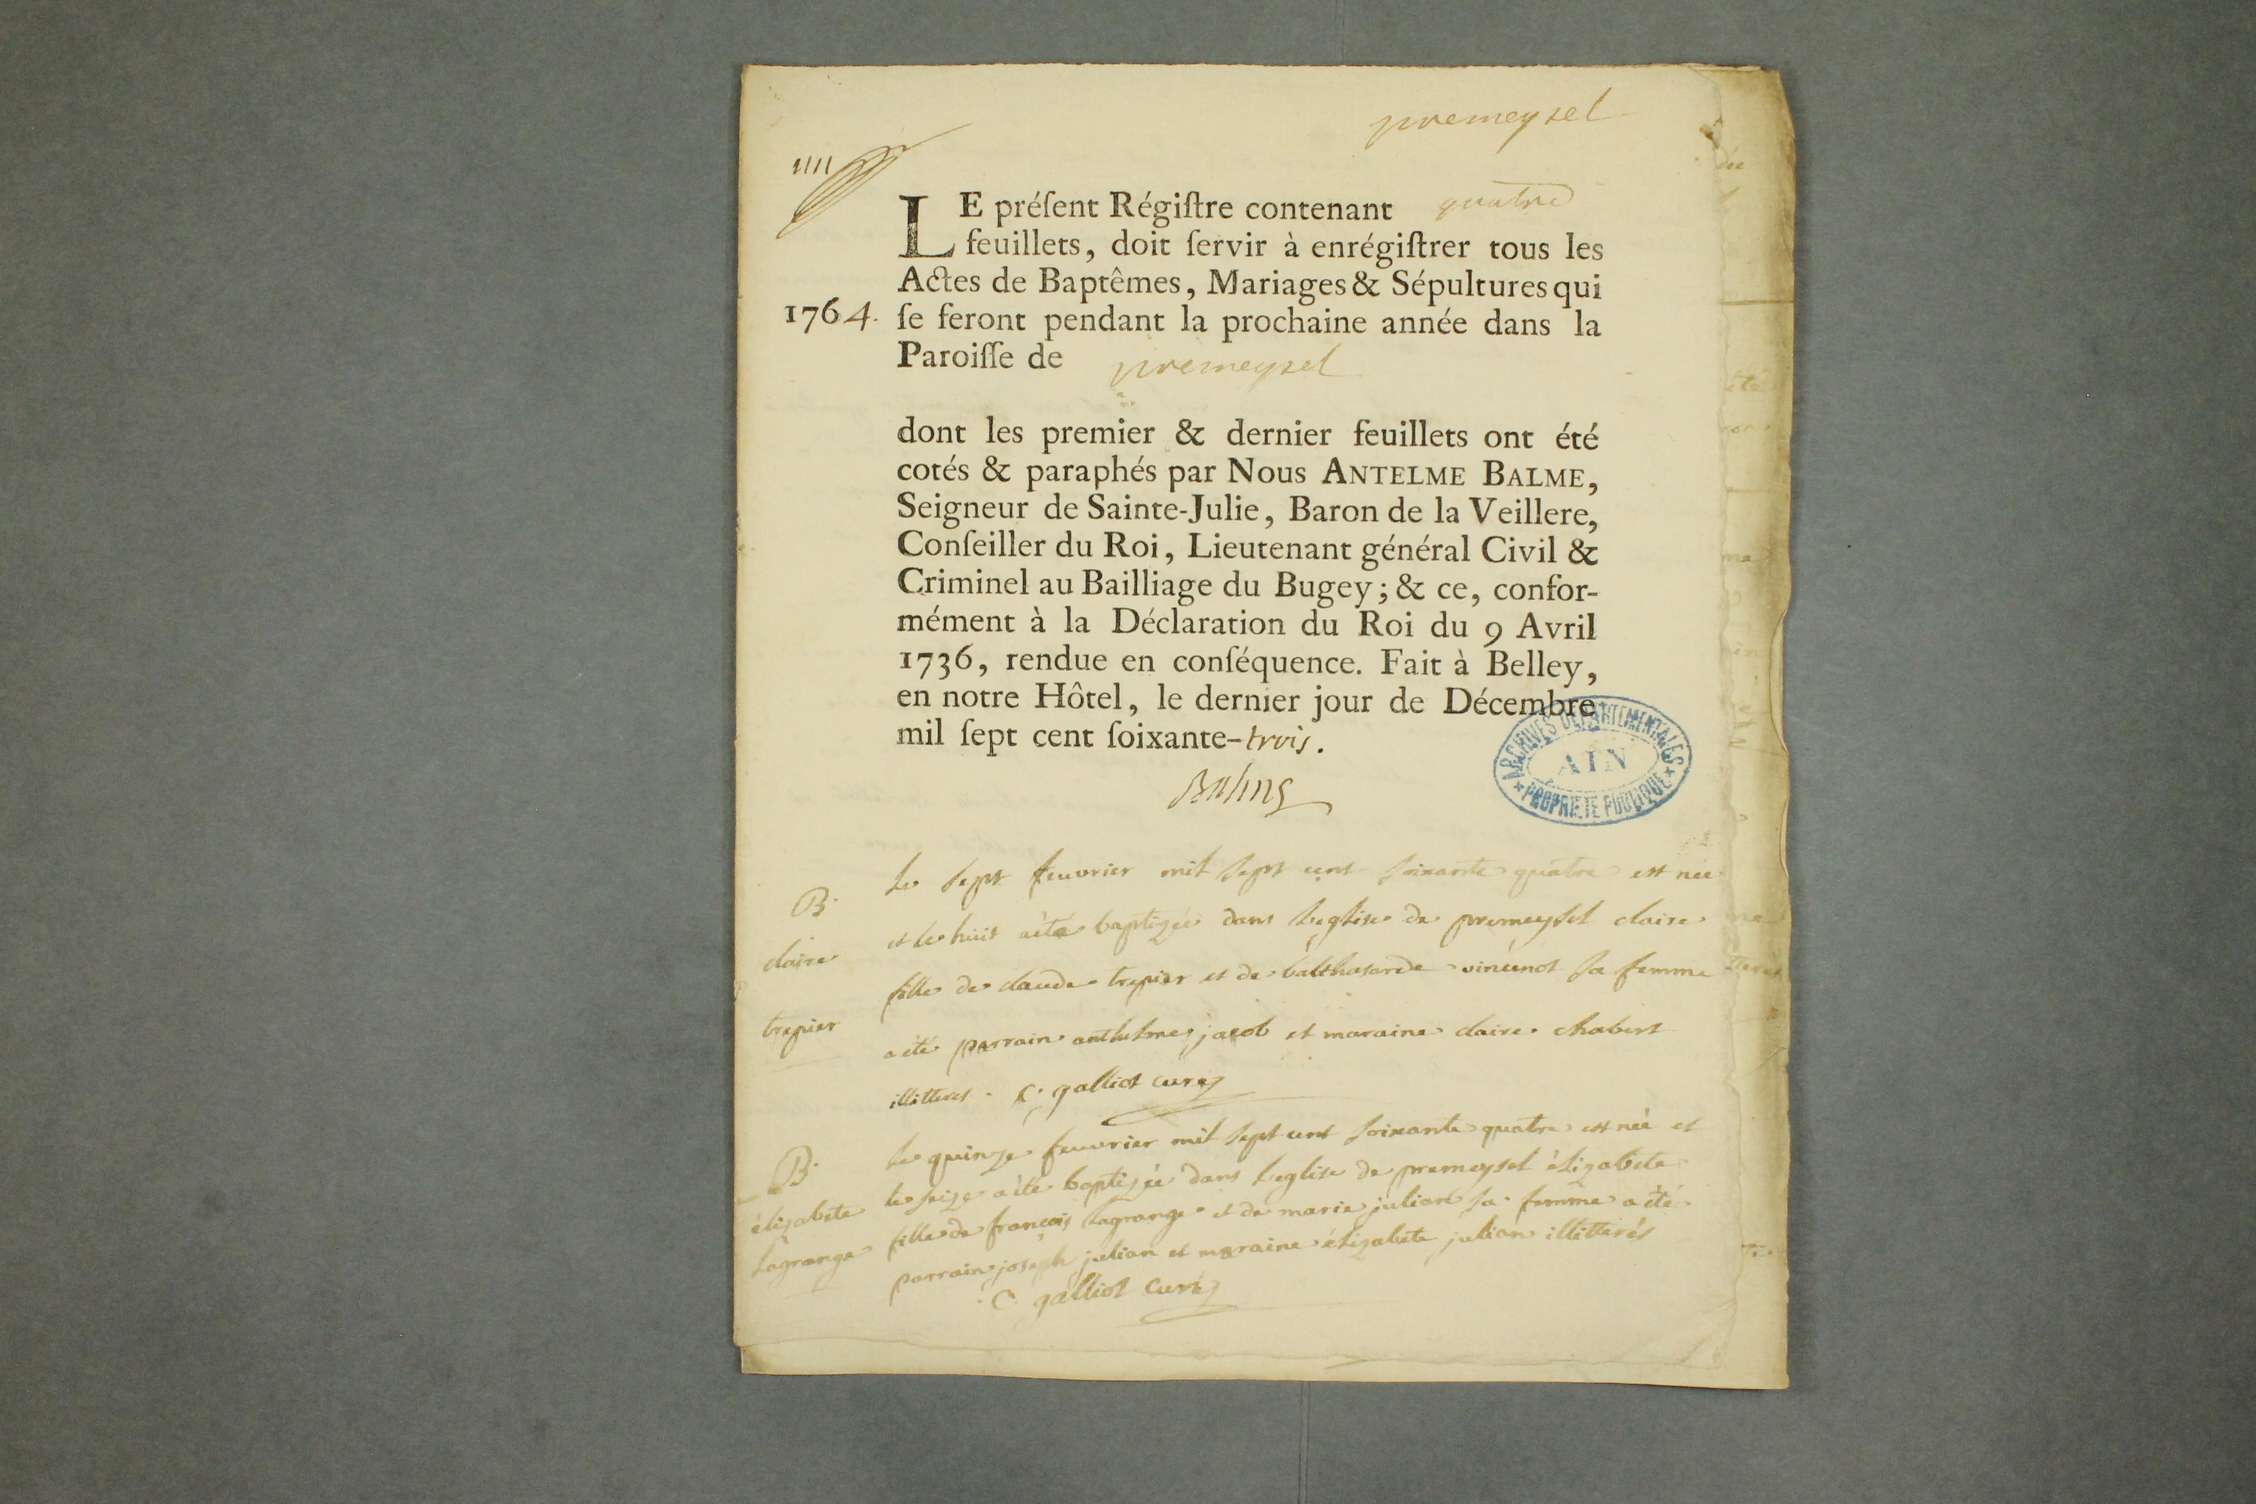 premeysel
1111
LE préſent Régiſtre contenant quatre
feuillets, doit ſervir à enrégiſtrer tous les
Actes de Baptêmes, Mariages & Sépultures qui
1764. ſe feront pendant la prochaine année dans la
Paroiſſe de premeysel
dont les premier & dernier feuillets ont été
cotés & paraphés par Nous ANTELME BALME,
Seigneur de Sainte-Julie, Baron de la Veillere,
Conſeiller du Roi, Lieutenant général Civil &
Criminel au Bailliage du Bugey; & ce, confor-
mément à la Déclaration du Roi du 9 Avril
1736, rendue en conſéquence. Fait à Belley,
en notre Hôtel, le dernier jour de Décembre
mil ſept cent ſoixante-trois.
Balme
ARCHIVES DÉPARTEMENTALES
AIN
PROPRIÉTÉ PUBLIQUE
B.
claire
trepier
le sept feuvrier mil sept cent soixante quatre est née
et le huit aété baptizée dans l'eglise de premeysel claire
fille de claude trepier et de balthasarde vincenot sa femme
aété parrain anthelme jacob et maraine claire chabert
illitteres. C. galliot curé
B.
élizabete
Lagrange
le quinze feuvrier mil sept cent soixante quatre est née et
le seize aété baptizée dans l'eglise de premeysel élizabete
fille de françois Lagrange et de marie julian sa femme aété
parrain joseph julian et maraine élizabete julian illitterés
C. galliot curé